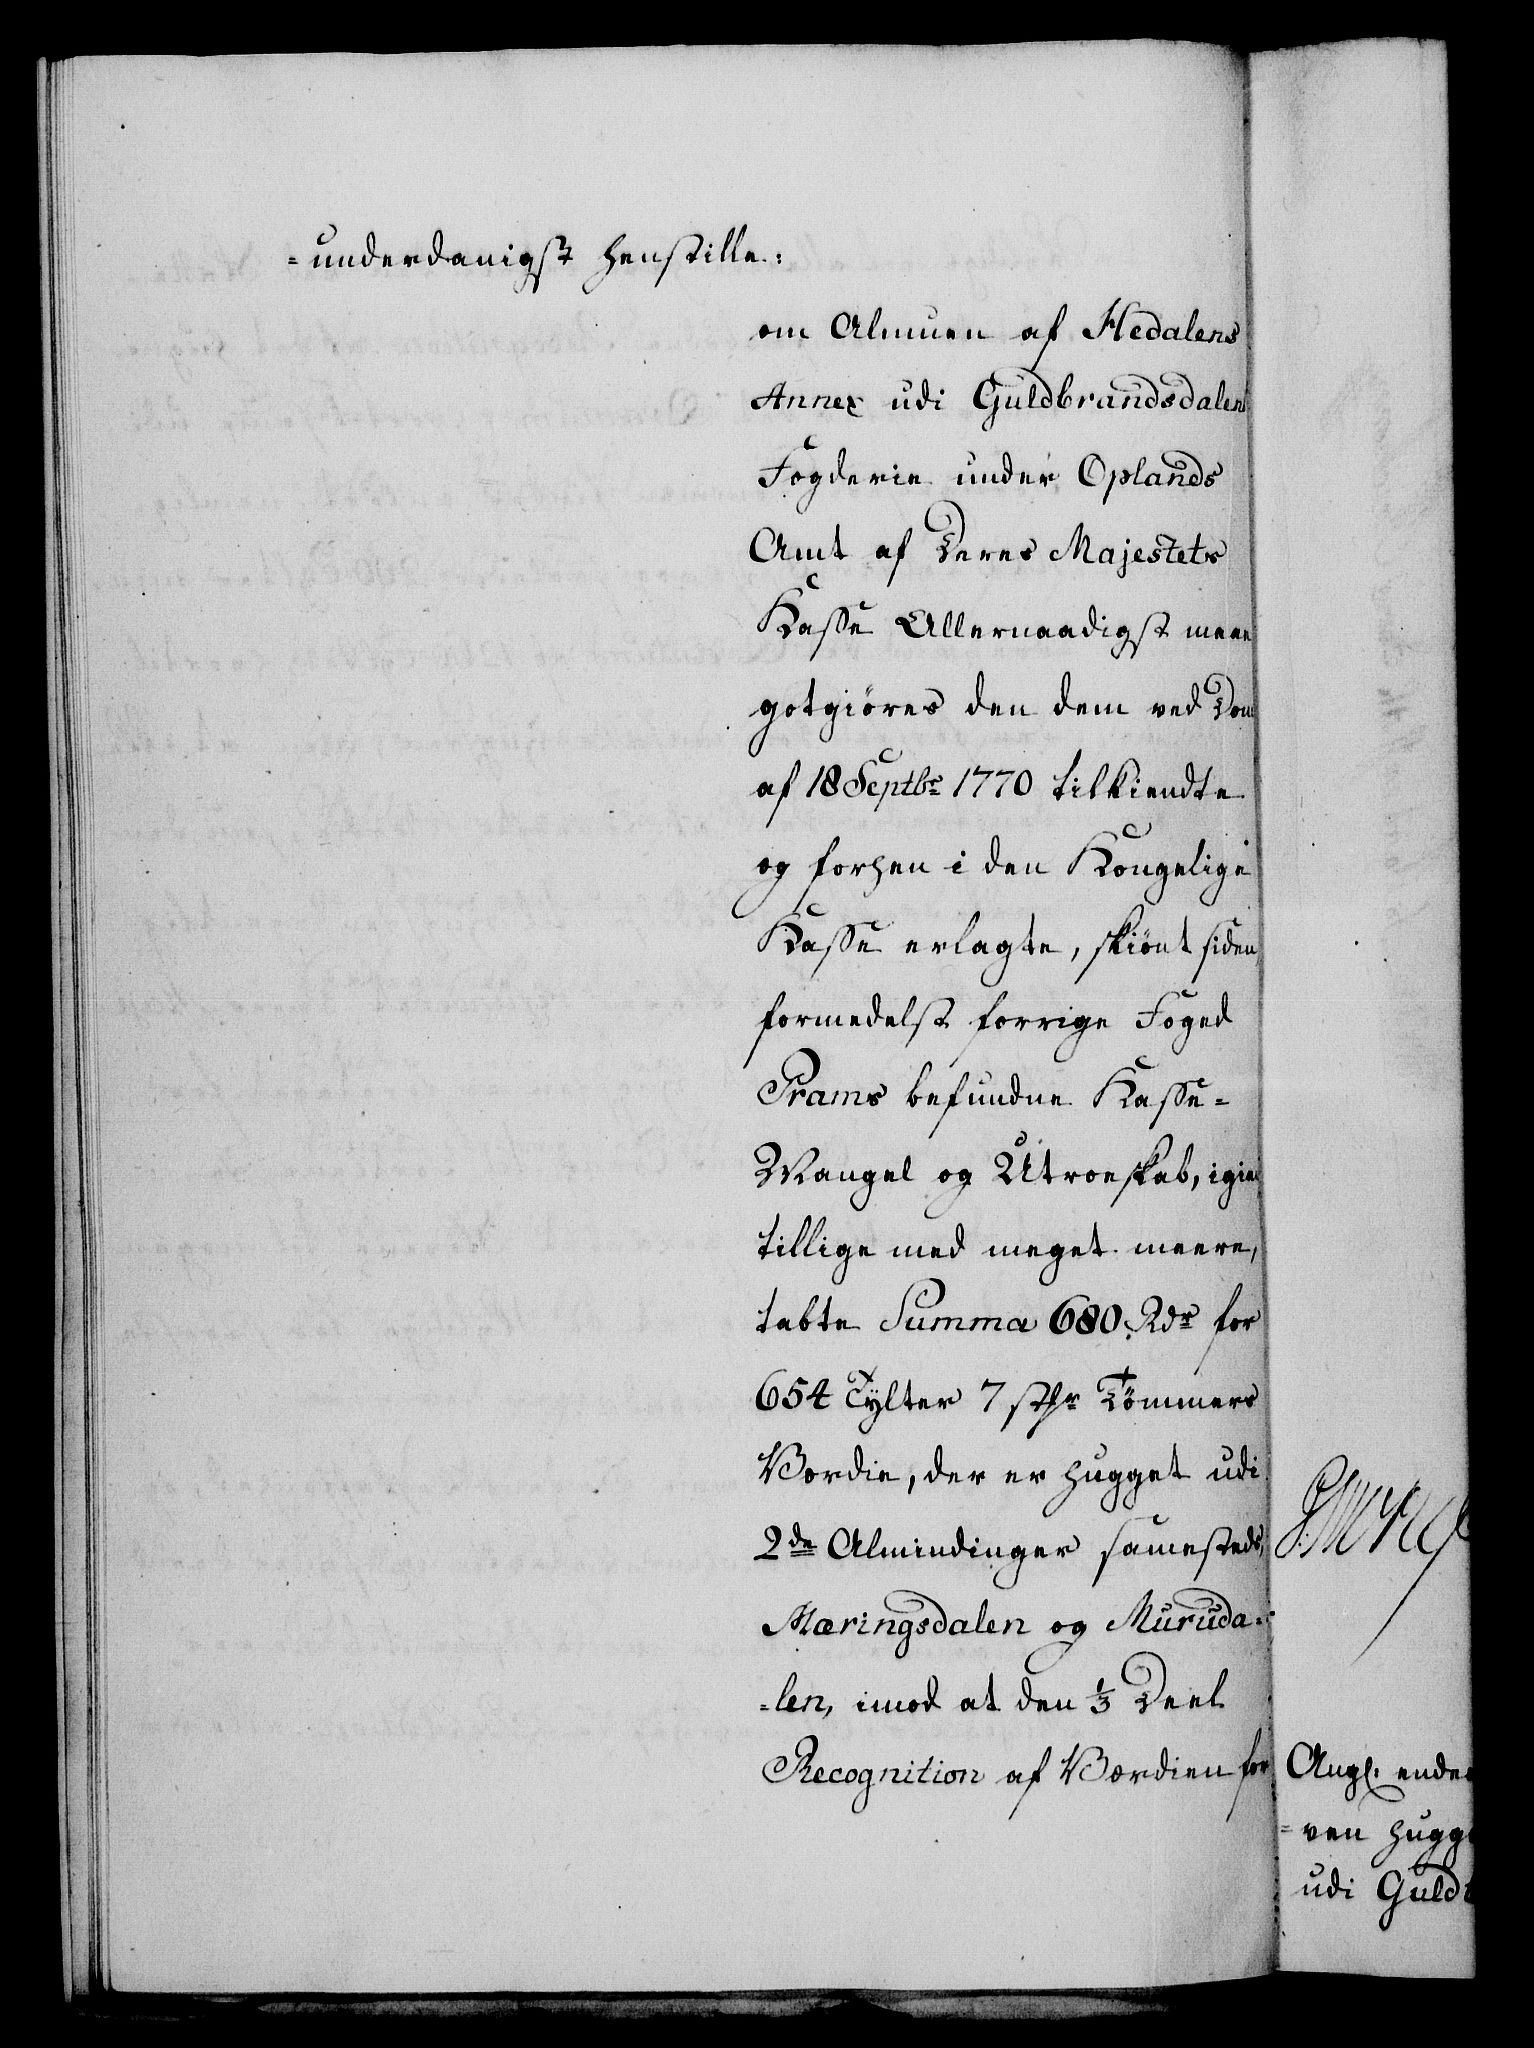 =underdanigst henstille:
om Almuen af Hedalens
Annex udi Guldbrandsdalens
Fogderie under Oplands
Amt af Deres Majestets
Kasse Allernaadigst maae
gotgiøres den dem ved Dom
af 18 Septbr 1770 tilkiendte
og forhen i den Kongelige
Kasse erlagte, skiønt siden,
formedelst forrige Foged
Prams befundne Kasse=
Mangel og Utroeskab, igien
tillige med meget meere,
tabte Summa 680 Rdr for
654 Tylter 7 stkr Tømmers
Værdie, der er hugget udi
2de Almindinger samesteds,
Mæringsdalen og Muruda=
=len, imod at den 1/3 Deel
Recognition af Værdien for
Ang:
=ven
udi